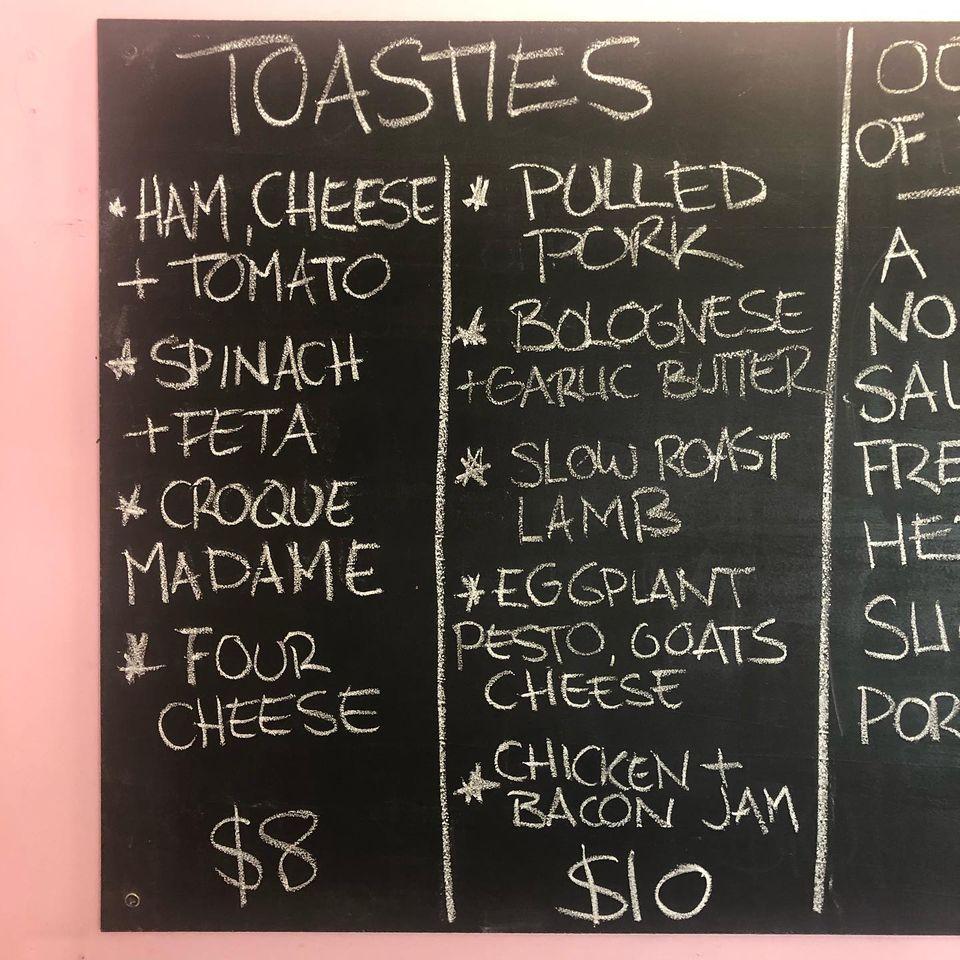 TOASTIES
* HAM, CHEESE
+ TOMATO
* SPINACH
+ FETA
* CROQUE
MADAME
* FOUR
CHEESE
$8
* PULLED
PORK
* BOLOGNESE
+ GARLIC BUTTER
* SLOW ROAST
LAMB
* EGGPLANT
PESTO, GOATS
CHEESE
* CHICKEN +
BACON JAM
$10
OF
A
NO